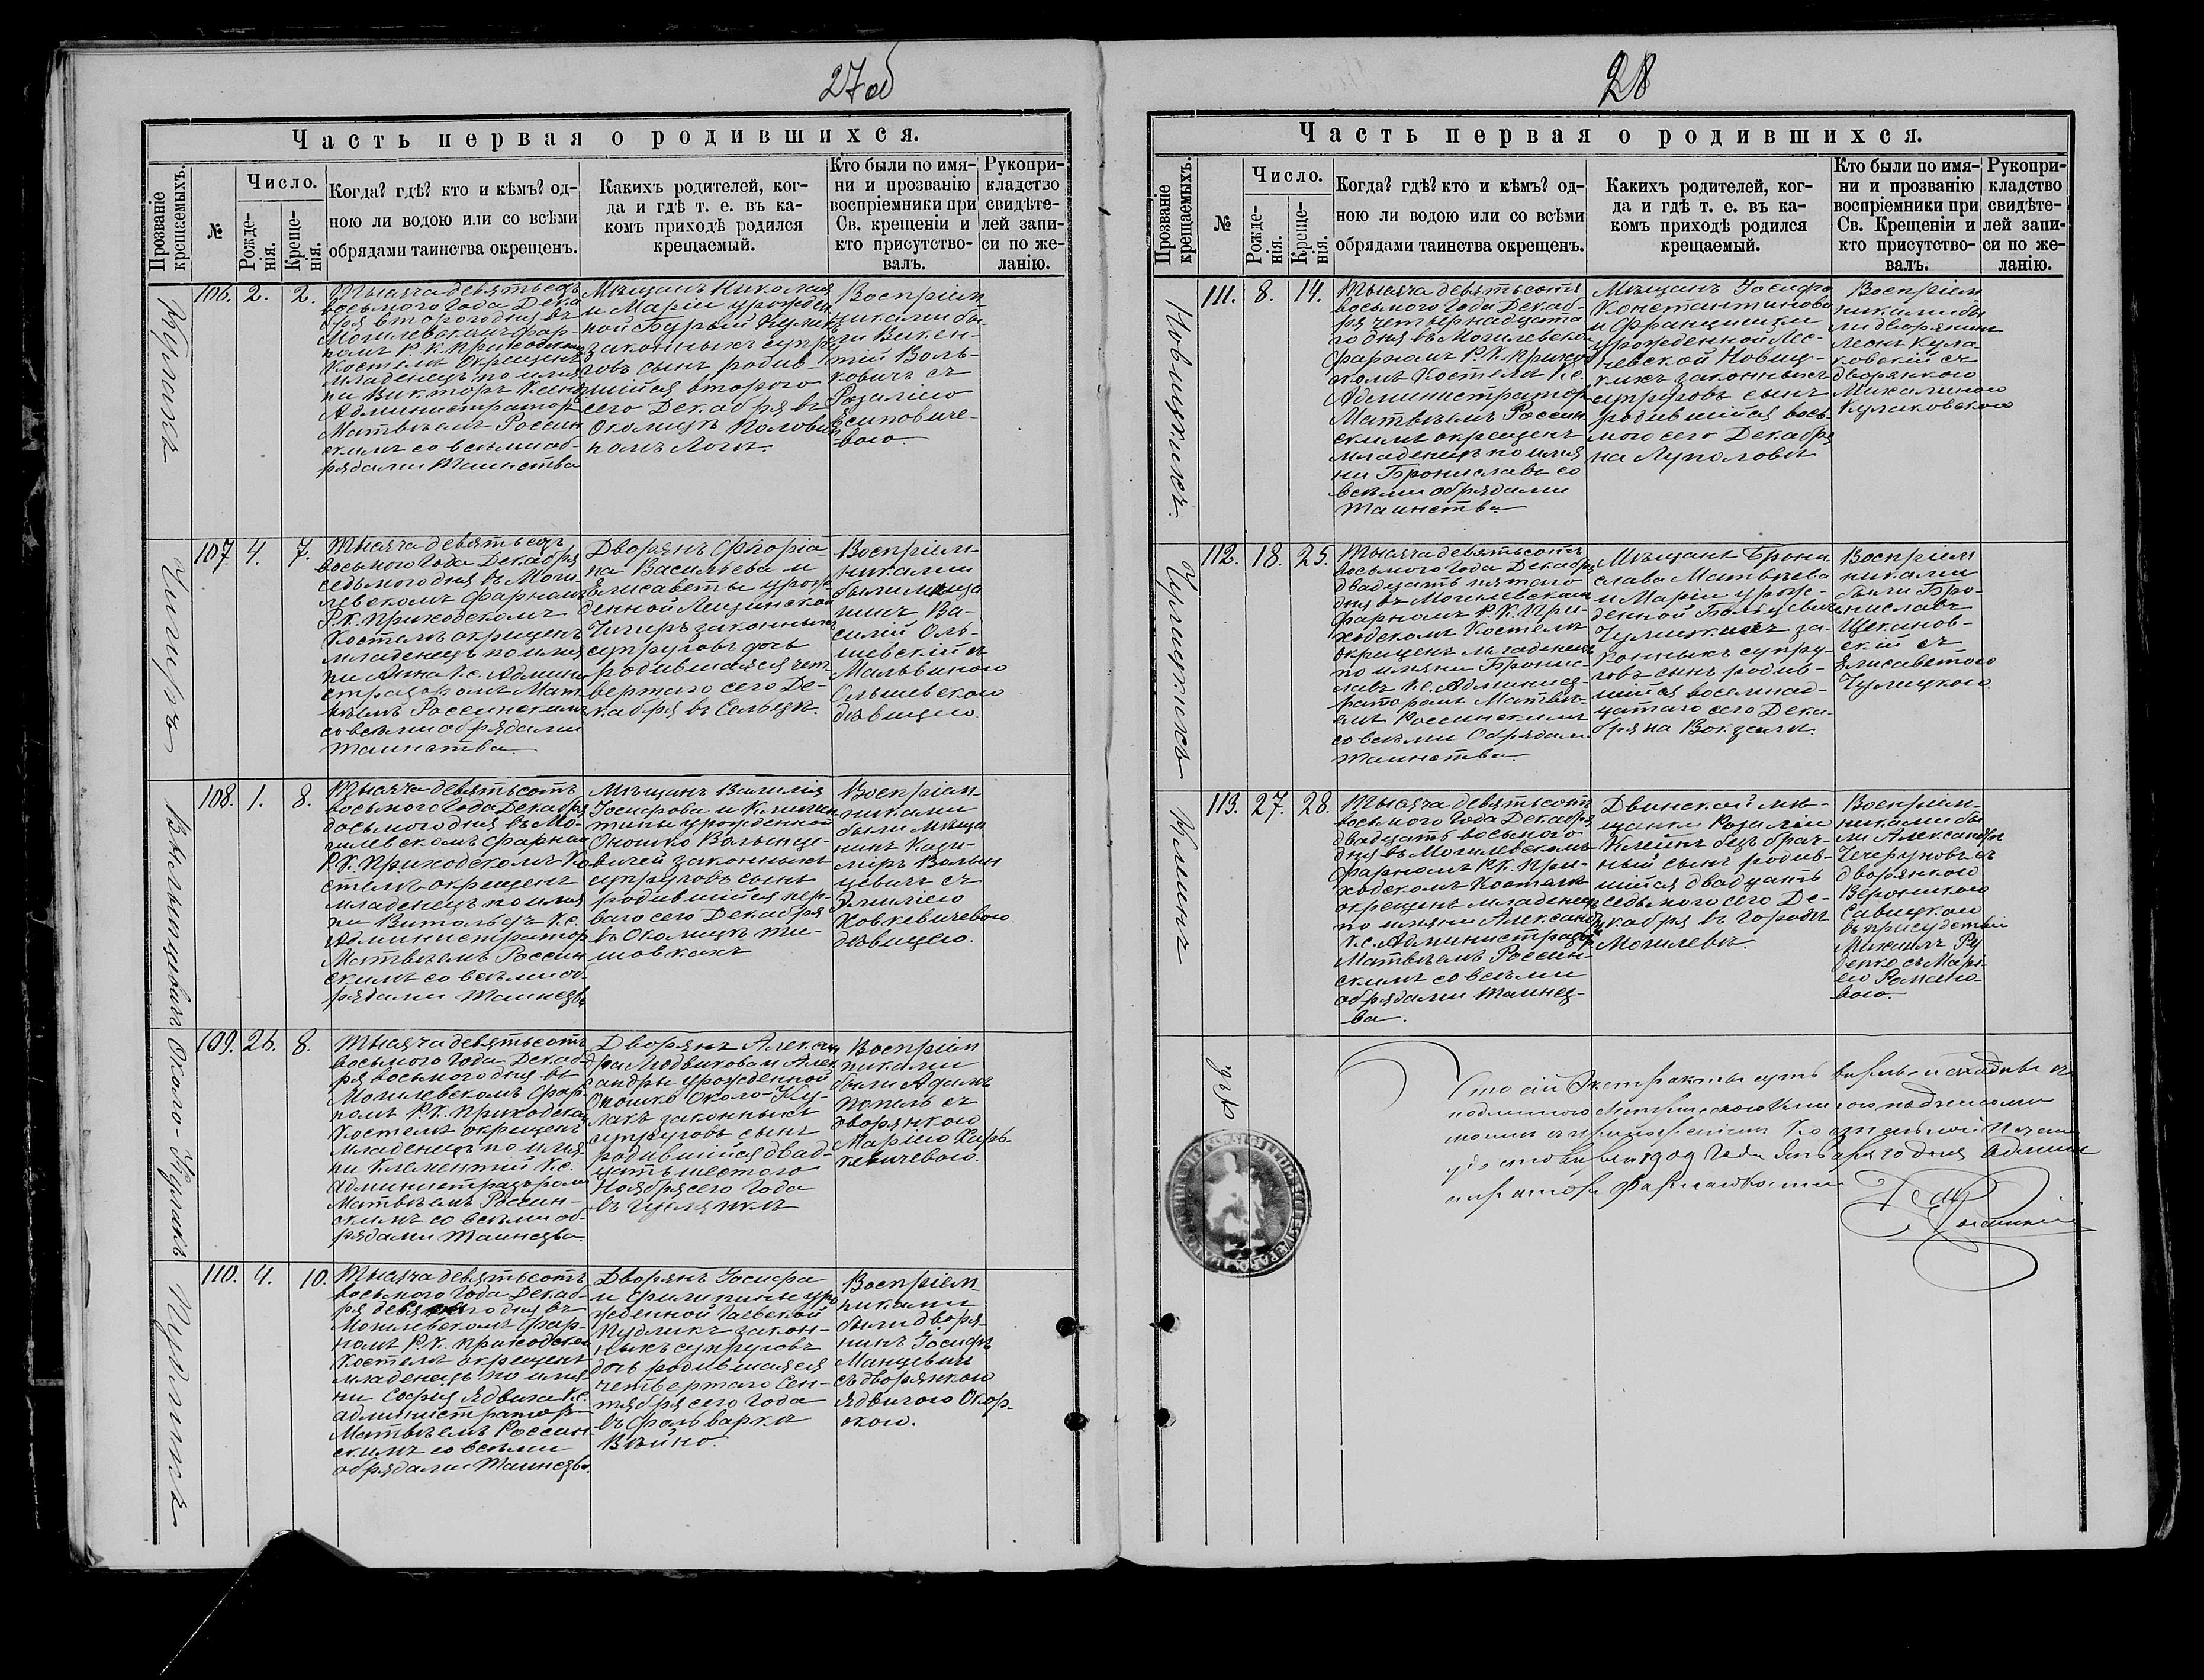 27об
Часть первая о родившихся.
Прозваніе крещаемыхъ.
№
Число.
Рожденія.
Крещенія.
Когда? гдѣ? кто и кѣмъ? од-
ною ли водою или со всѣми
обрядами таинства окрещенъ.
Какихъ родителей, ког-
да и гдѣ т. е. въ ка-
комъ приходѣ родился
крещаемый.
Кто были по имя-
ни и прозванію
воспріемники при
Св. крещеніи и
кто присутство-
валъ.
Рукопри-
кладство
свидѣте-
лей запи-
си по же-
ланію.
106. 2. 2.
Тысяча девятьсотъ
восьмого Года Дека
бря второго дня въ
Могилевскомъ Фар-
номъ Р. К. Приходском
Костелѣ окрещенъ
младенецъ по имя
ни Викторъ Ксенд
Администратор
Матвѣемъ Россин
скимъ со всѣми об-
рядами Таинства
Мѣщанъ Николая
и Маріи урожден
ной
законныхъ супру
говъ сынъ родив-
шійся второго
сего Декабря въ
Околицѣ Половин
номъ Логѣ.
Воспріем
никами бы-
ли Викен-
тій Воль-
ковичъ съ
Розаліею
Есиповиче-
вою
Чигиръ
107. 4. 7.
Тысяча девятьсотъ
восьмого Года Декабря
седьмого дня въ Моги-
левскомъ Фарномъ
Р.К. Приходскомъ
Костелѣ окрещенъ
младенецъ по имя
ни Анна Кс. Админи
страторомъ Мат
вѣемъ Россинскимъ
со всѣми обрядами
Таинства
Дворянъ Флоріа-
на Васильева и
Елисаветы урож
денной Лещинской
Чигиръ законныхъ
супруговъ дочь
родившаяся чет
вертаго сего Де-
кабря въ Сельцѣ.
Воспріем-
никами
были мѣща
нинъ Ва-
силій Оль-
шевскій съ
Мальвиною
Ольшевскою
дѣвицею.
Волынцевичъ
108. 1. 8.
Тысяча девятьсотъ
восьмого Года Декабря
восьмого дня въ Мо-
гилевскомъ Фарном
Р.К. Приходскомъ Ко
стелѣ окрещенъ
младенецъ по имя
ни Витольдъ Кс.
Администратор
Матвѣемъ Россин
скимъ со всѣми об-
рядами Таинства
Мѣщанъ Василія
Іосифова и Клемен
тины урожденной
Оношко Волынце-
вичей законныхъ
супруговъ сынъ
родившійся пер-
ваго сего Декабря
въ Околицѣ Ти-
шовкахъ
Воспріем
никами
были Мѣща
нинъ Кази-
міръ Волын
цевичъ съ
Эмиліею
Ховкевичевою
дѣвицею.
Около-Кулакъ
109. 26. 8.
Тысяча девятьсотъ
восьмого Года Декаб-
ря восьмого дня въ
Могилевскомъ Фар-
номъ Р.К. Приходском
Костелѣ окрещенъ
младенецъ по имя
ни Климентій Кс.
Администраторомъ
Матвѣемъ Россин-
скимъ со всѣми об-
рядами Таинства
Дворянъ Алексан
дра Людвикова и Алек
сандры урожденной
Оношко Около-Ку-
лакъ законныхъ
супруговъ сынъ
родившійся двад-
цать шестого
Ноября сего Года
въ
Воспріем
никами
были Адамъ
Попель съ
дворянкою
Маріею Харь-
кевичевою.
Пудликъ
110. 4. 10.
Тысяча девятьсотъ
восьмого Года Декаб-
ря дня въ
Могилевскомъ Фар-
номъ Р.К. Приходском
Костелѣ окрещенъ
младенецъ по имя
ни Софія Ядвига Кс.
Администратор
Матвѣемъ Россин-
скимъ со всѣми
обрядами Таинства.
Дворянъ Іосифа
и Филипины уро
жденной Гаевской
Пудликъ закон-
ныхъ супруговъ
дочь родившаяся
четвертаго Сен-
тября сего Года
въ Фольваркѣ
Вейно.
Воспріем-
никами
были дворя-
нинъ Іосифъ
Манцевичъ
съ дворянкою
Ядвигою Окор-
скою.
28
Часть первая о родившихся.
Прозваніе крещаемыхъ.
№
Число.
Рожденія.
Крещенія.
Когда? гдѣ? кто и кѣмъ? од-
ною ли водою или со всѣми
обрядами таинства окрещенъ.
Какихъ родителей, ког-
да и гдѣ т. е. въ ка-
комъ приходѣ родился
крещаемый.
Кто были по имя-
ни и прозванію
воспріемники при
Св. Крещеніи и
кто присутство-
валъ.
Рукопри-
кладство
свидѣте-
лей запи-
си по же-
ланію.
Новицкихъ.
111. 8. 14.
Тысяча девятьсотъ
восьмого Года Декаб-
ря четвернадцата
го дня въ Могилевском
Фарномъ Р.К. Приход
скомъ Костелѣ Кс.
Администратор
Матвѣемъ Россин
скимъ окрещенъ
младенецъ по имя
ни Брониславъ со
всѣми обрядами
Таинства
Мѣщанъ Іосифа
Константинова
и Францишки
урожденной Лес-
чевской Новиц-
кихъ законныхъ
супруговъ сынъ
родившійся вось
мого сего Декабря
на Луполовѣ
Воспріем
никами бы
ли дворянин
Леонъ Кула
ковскій съ
дворянкою
Михалиною
Кулаковскою
Чулицкихъ
112. 18. 25.
Тысяча девятьсотъ
восьмого Года Декабря
двадцать пятого
дня въ Могилевском
Фарномъ Р.К. При-
ходскомъ Костелѣ
окрещенъ младенецъ
по имяни Бронис-
лавъ Кс. Админист-
раторомъ Матвѣ-
емъ Россинскимъ
со всѣми Обрядами
Таинства
Мѣщанъ Брони
слава Матвѣева
и Маріи урож-
денной
Чулицкихъ за-
конныхъ супру-
говъ сынъ родив-
шійся восемнад-
цатаго сего Дека-
бря на Вокзалѣ.
Воспріем
никами
были Бро-
ниславъ
Щехнов-
скій съ
Елисаветою
Чулицкою.
Клинъ
113. 27. 28.
Тысяча девятьсотъ
восьмого Года Декабря
двадцать восьмого
дня въ Могилевскомъ
Фарномъ Р.К. При-
ходскомъ Костелѣ
окрещенъ младенецъ
по имяни Александръ
Кс. Администратор
Матвѣемъ Россин-
скимъ со всѣми
обрядами Таинст-
ва.
Двинской мѣ-
щанки Розаліи
Клейнъ безбрач-
ный сынъ родив-
шійся двадцать
седьмого сего Де-
кабря въ Городѣ
Могилевѣ.
Воспріем-
никами бы
ли Александръ
Чечеруковъ съ
дворянкою
Вероникою
Савицкою
въ присудствіи
Михаилъ Ру
денко съ Марі-
ею Романо-
вою.
Что сіи Экстракты суть вѣрны и сходны съ
подлинною Метрическою Книгою подписомъ
моимъ съ приложеніемъ Костельной Печати
удостовѣряю 1909 Года Января 10 дня Админи
страторъ